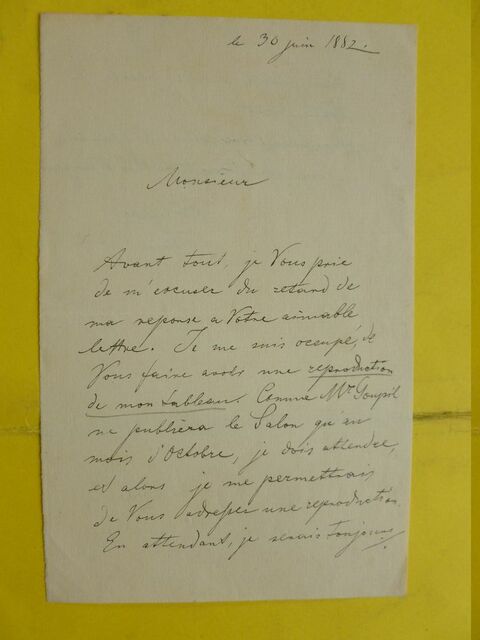 le 30 juin 1882.
Monsieur
Avant tout, je Vous prie
de m'excuser du retard de
ma reponse a Votre aimable
lettre. Je me suis occupé, de
Vous faire avoir une reproduction
de mon tableau. Comme Mr Goupil
ne publiera le Salon qu'au
mois d'Octobre, je dois attendre,
et alors je me permettrais
de Vous adresser une reproduction.
En attendant, je serais toujours